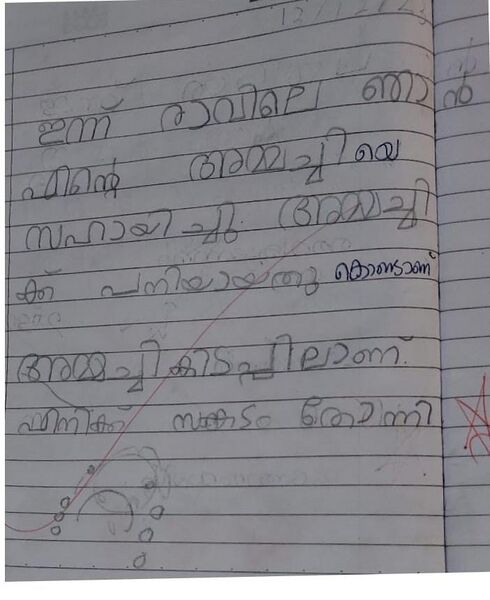 12/12/23
ഇന്ന് രാവിലെ ഞാൻ
എന്റെ അമ്മച്ചിയെ
സഹായിച്ചു. അമ്മച്ചി
ക്ക് പനിയായതു കൊണ്ടാണ്
അമ്മച്ചി കിടപ്പിലാണ്.
എനിക്ക് സങ്കടം തോന്നി